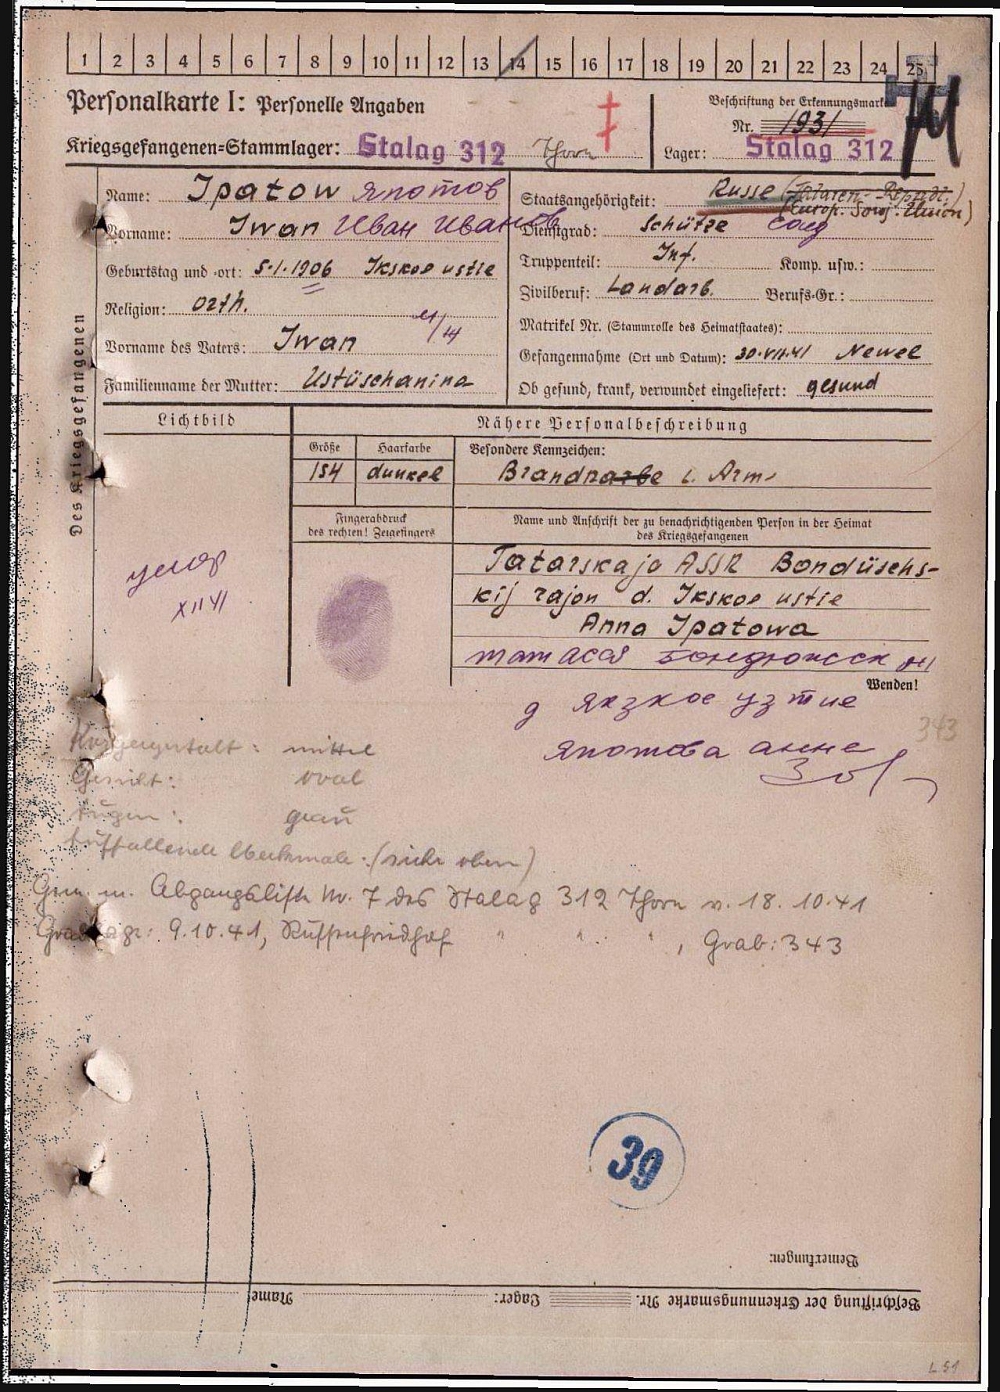 1 2 3 4 5 6 7 8 9 10 11 12 13 14 15 16 17 18 19 20 21 22 23 24 25
Personalkarte I: Personelle Angaben
Beschriftung der Erkennungsmarke
Nr. 1931
Kriegsgefangenen-Stammlager: Stalag 312 Thorn
Lager: Stalag 312
Des Kriegsgefangenen
Name: Ipatow Япотов
Vorname: Iwan Иван Иванов
Geburtstag und -ort: 5.1.1906 Ikskoe ustie
Religion: orth.
Vorname des Vaters: Iwan
Familienname der Mutter: Ustüschanina
Staatsangehörigkeit: Russe (Tataren-Republ.)
(Europ. Sowj. Union)
Dienstgrad: Schütze
Truppenteil: Inf. Komp. usw.:
Zivilberuf: Landarb. Berufs-Gr.:
Matrikel Nr. (Stammrolle des Heimatstaates):
Gefangennahme (Ort und Datum): 30.VII.41 Newel
Ob gesund, krank, verwundet eingeliefert: gesund
Lichtbild
Nähere Personalbeschreibung
Größe Haarfarbe Besondere Kennzeichen:
154 dunkel Brandnarbe i. Arm
Fingerabdruck
des rechten! Zeigefingers
Name und Anschrift der zu benachrichtigenden Person in der Heimat
des Kriegsgefangenen
Tatarskaja ASSR Bondüschs-
kij rajon d. Ikskoe ustie
Anna Ipatowa
тат АССЯ Бондюжсск
умер
XII 41
Wenden!
д якзкое узтие
343
япотова анне
Körpergestalt: mittel
Gesicht: oval
Augen: grau
Auffallende Merkmale: (siehe oben)
Gem. m. Abgangsliste Nr. 7 des Stalag 312 Thorn v. 18.10.41
9.10.41, Russenfriedhof " " " , Grab: 343
39
Bemerkungen:
Beschriftung der Erkennungsmarke Nr. Lager: Name:
L 51